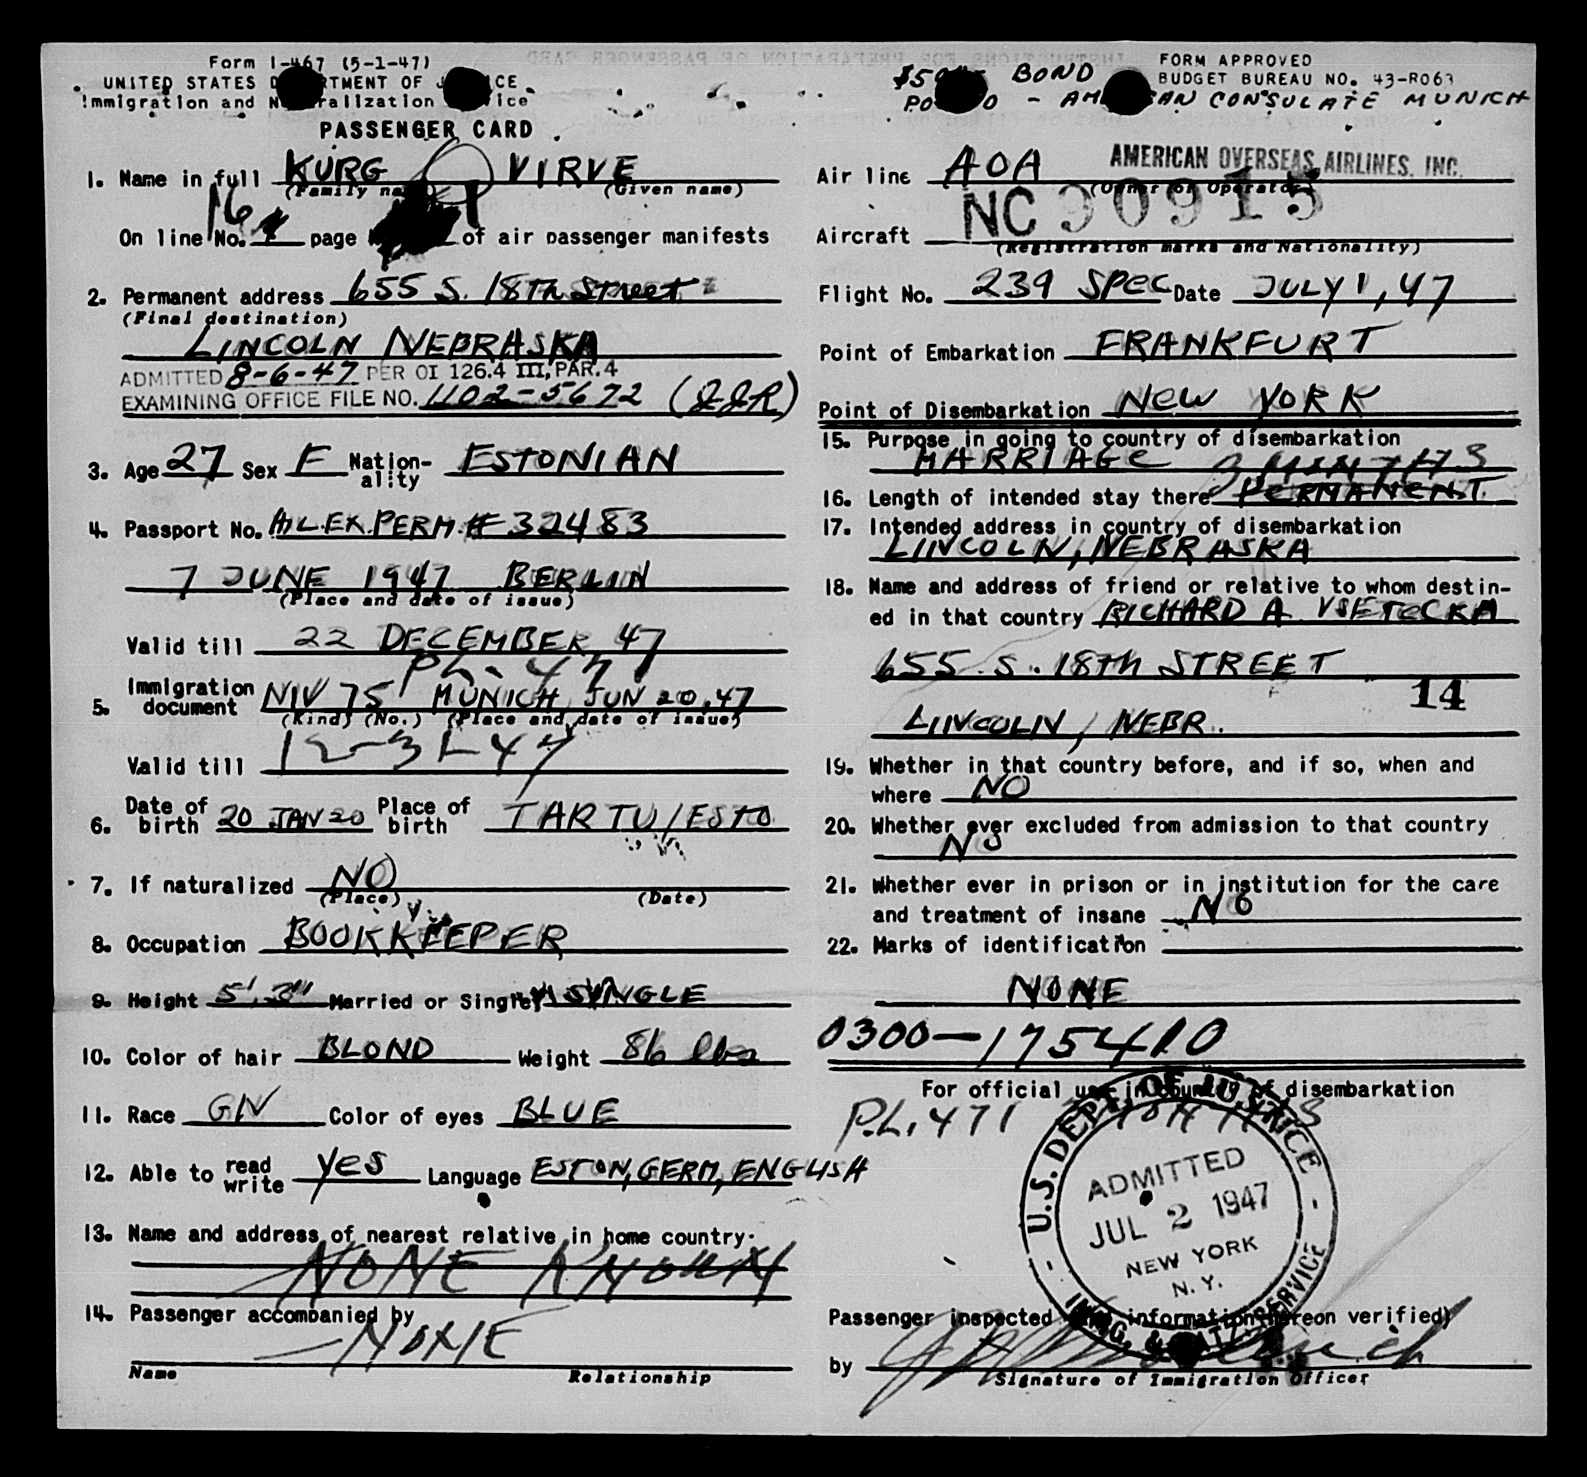 Form I-467 (5-1-47)
UNITED STATES
Immigration and
PASSENGER CARD
BOND
AMERICAN CONSULATE MUNICH
FORM APPROVED
BUDGET BUREAU NO. 43-R063
1. Name in full KURG VIRVE
(Family name) (Given name)
16
On line No. page of air passenger manifests
2. Permanent address 655 S. 18TH Street
(Final destination)
LINCOLN NEBRASKA
ADMITTED 8-6-47 PER OI 126.4 III, PAR. 4
EXAMINING OFFICE FILE NO. 1102-5672 (JJR)
3. Age 27 Sex F Nation-ality ESTONIAN
4. Passport No. #32483
7 JUNE 1947 BERLIN
(Place and date of issue)
Valid till 22 DECEMBER 47
P.L. 471
5. Immigration document NIV 75 MUNICH JUN 20, 47
(Kind) (No.) (Place and date of issue)
Valid till 12-31-47
6. Date of birth 20 JAN 20 Place of birth TARTU/ESTO
7. If naturalized NO
(Place) (Date)
8. Occupation BOOKKEEPER
9. Height 5'.3" Married or Single SINGLE
10. Color of hair BLOND Weight 86 lbs
11. Race GN Color of eyes BLUE
12. Able to read write yes Language ESTON, GERM, ENGLISH
13. Name and address of nearest relative in home country.
NONE KNOWN
14. Passenger accompanied by
NONE
Name Relationship
Air line AOA AMERICAN OVERSEAS AIRLINES, INC.
(Owner or Operator)
Aircraft NC 90915
(Registration marks and Nationality)
Flight No. 239 SPEC Date JULY 1, 47
Point of Embarkation FRANKFURT
Point of Disembarkation NEW YORK
15. Purpose in going to country of disembarkation
MARRIAGE
3 MONTHS
16. Length of intended stay there PERMANENT.
17. Intended address in country of disembarkation
LINCOLN, NEBRASKA
18. Name and address of friend or relative to whom destin-
ed in that country RICHARD A VSETECKA
655 S. 18TH STREET
14
LINCOLN, NEBR.
19. Whether in that country before, and if so, when and
where NO
20. Whether ever excluded from admission to that country
NO
21. Whether ever in prison or in institution for the care
and treatment of insane NO
22. Marks of identification
NONE
0300-175410
For official use in country of disembarkation
P.L. 471 MONTHS
U.S. DEPT. OF JUSTICE
ADMITTED
JUL 2 1947
NEW YORK
N. Y.
IMMIG. & NATZ. SERVICE
Passenger inspected and information hereon verified)
by
Signature of Immigration Officer